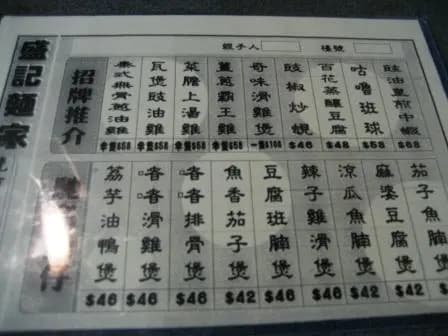 經手人 檯號
盛記麵家
招牌推介
無骨蔥油雞 半隻$58
瓦煲豉油雞 半隻$58
菜膽上湯雞 半隻$58
薑蔥霸王雞 半隻$58
奇味滑雞煲
豉椒炒蜆 $46
百花蒸釀豆腐 $48
咕嚕斑球 $58
豉油皇煎中蝦 $68
仔
荔芋油鴨煲 $46
啫啫滑雞煲 $46
啫啫排骨煲 $46
魚香茄子煲 $42
豆腐斑腩煲 $46
辣子雞滑煲 $46
涼瓜魚腩煲 $42
麻婆豆腐煲 $42
茄子魚腩煲